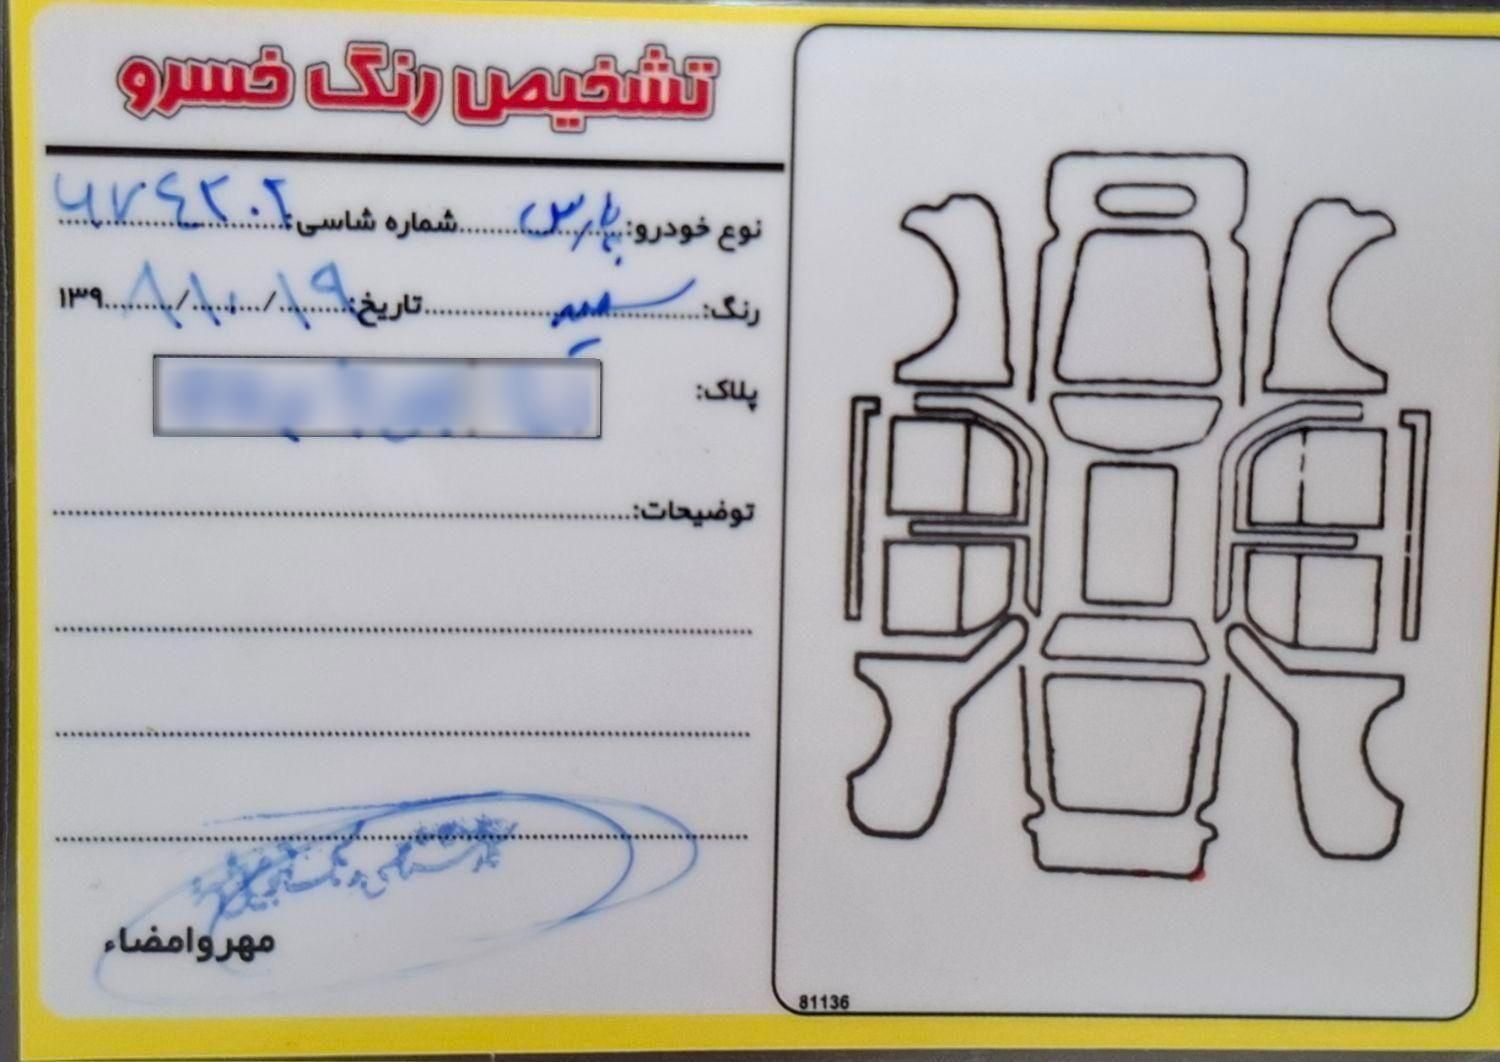 تشخیص رنگ خسرو
نوع خودرو: پارس شماره شاسی: ۶۷۴۲۲۰۲
رنگ: سفید تاریخ: ۱۹/۱۰/۱۳۹۸
پلاک:
توضیحات:
مهر و امضاء
81136